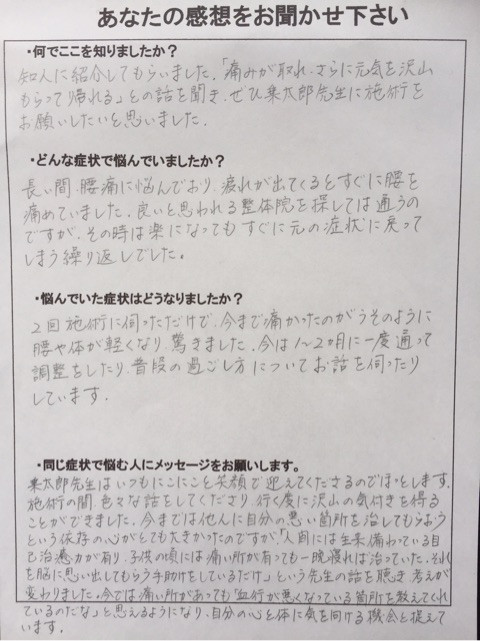 あなたの感想をお聞かせ下さい
・何でここを知りましたか？
知人に紹介してもらいました。「痛みが取れ、さらに元気を沢山
もらって帰れる」との話を聞き、ぜひ集太郎先生に施術を
お願いしたいと思いました。
・どんな症状で悩んでいましたか？
長い間、腰痛に悩んでおり、疲れが出てくるとすぐに腰を
痛めていました。良いと思われる整体院を探しては通うの
ですが、その時は楽になってもすぐに元の症状に戻って
しまう繰り返しでした。
・悩んでいた症状はどうなりましたか？
2回施術に伺っただけで、今まで痛かったのがうそのように
腰や体が軽くなり、驚きました。今は1〜2カ月に一度通って
調整をしたり、普段の過ごし方についてお話を伺ったり
しています。
・同じ症状で悩む人にメッセージをお願いします。
集太郎先生はいつもにこにこと笑顔で迎えてくださるのでほっとします。
施術の間、色々な話をしてくださり、行く度に沢山の気付きを得る
ことができました。今までは他人に自分の悪い箇所を治してもらおう
という依存の心がとても大きかったのですが、「人間には生来備わっている自
己治癒力が有り、子供の頃には痛い所が有っても一晩寝れば治っていた。それ
を脳に思い出してもらう手助けをしているだけ」という先生の話を聴き、考えが
変わりました。今では痛い所があっても「血行が悪くなっている箇所を教えてく
れているのだな」と思えるようになり、自分の心と体に気を向ける機会と捉えて
います。